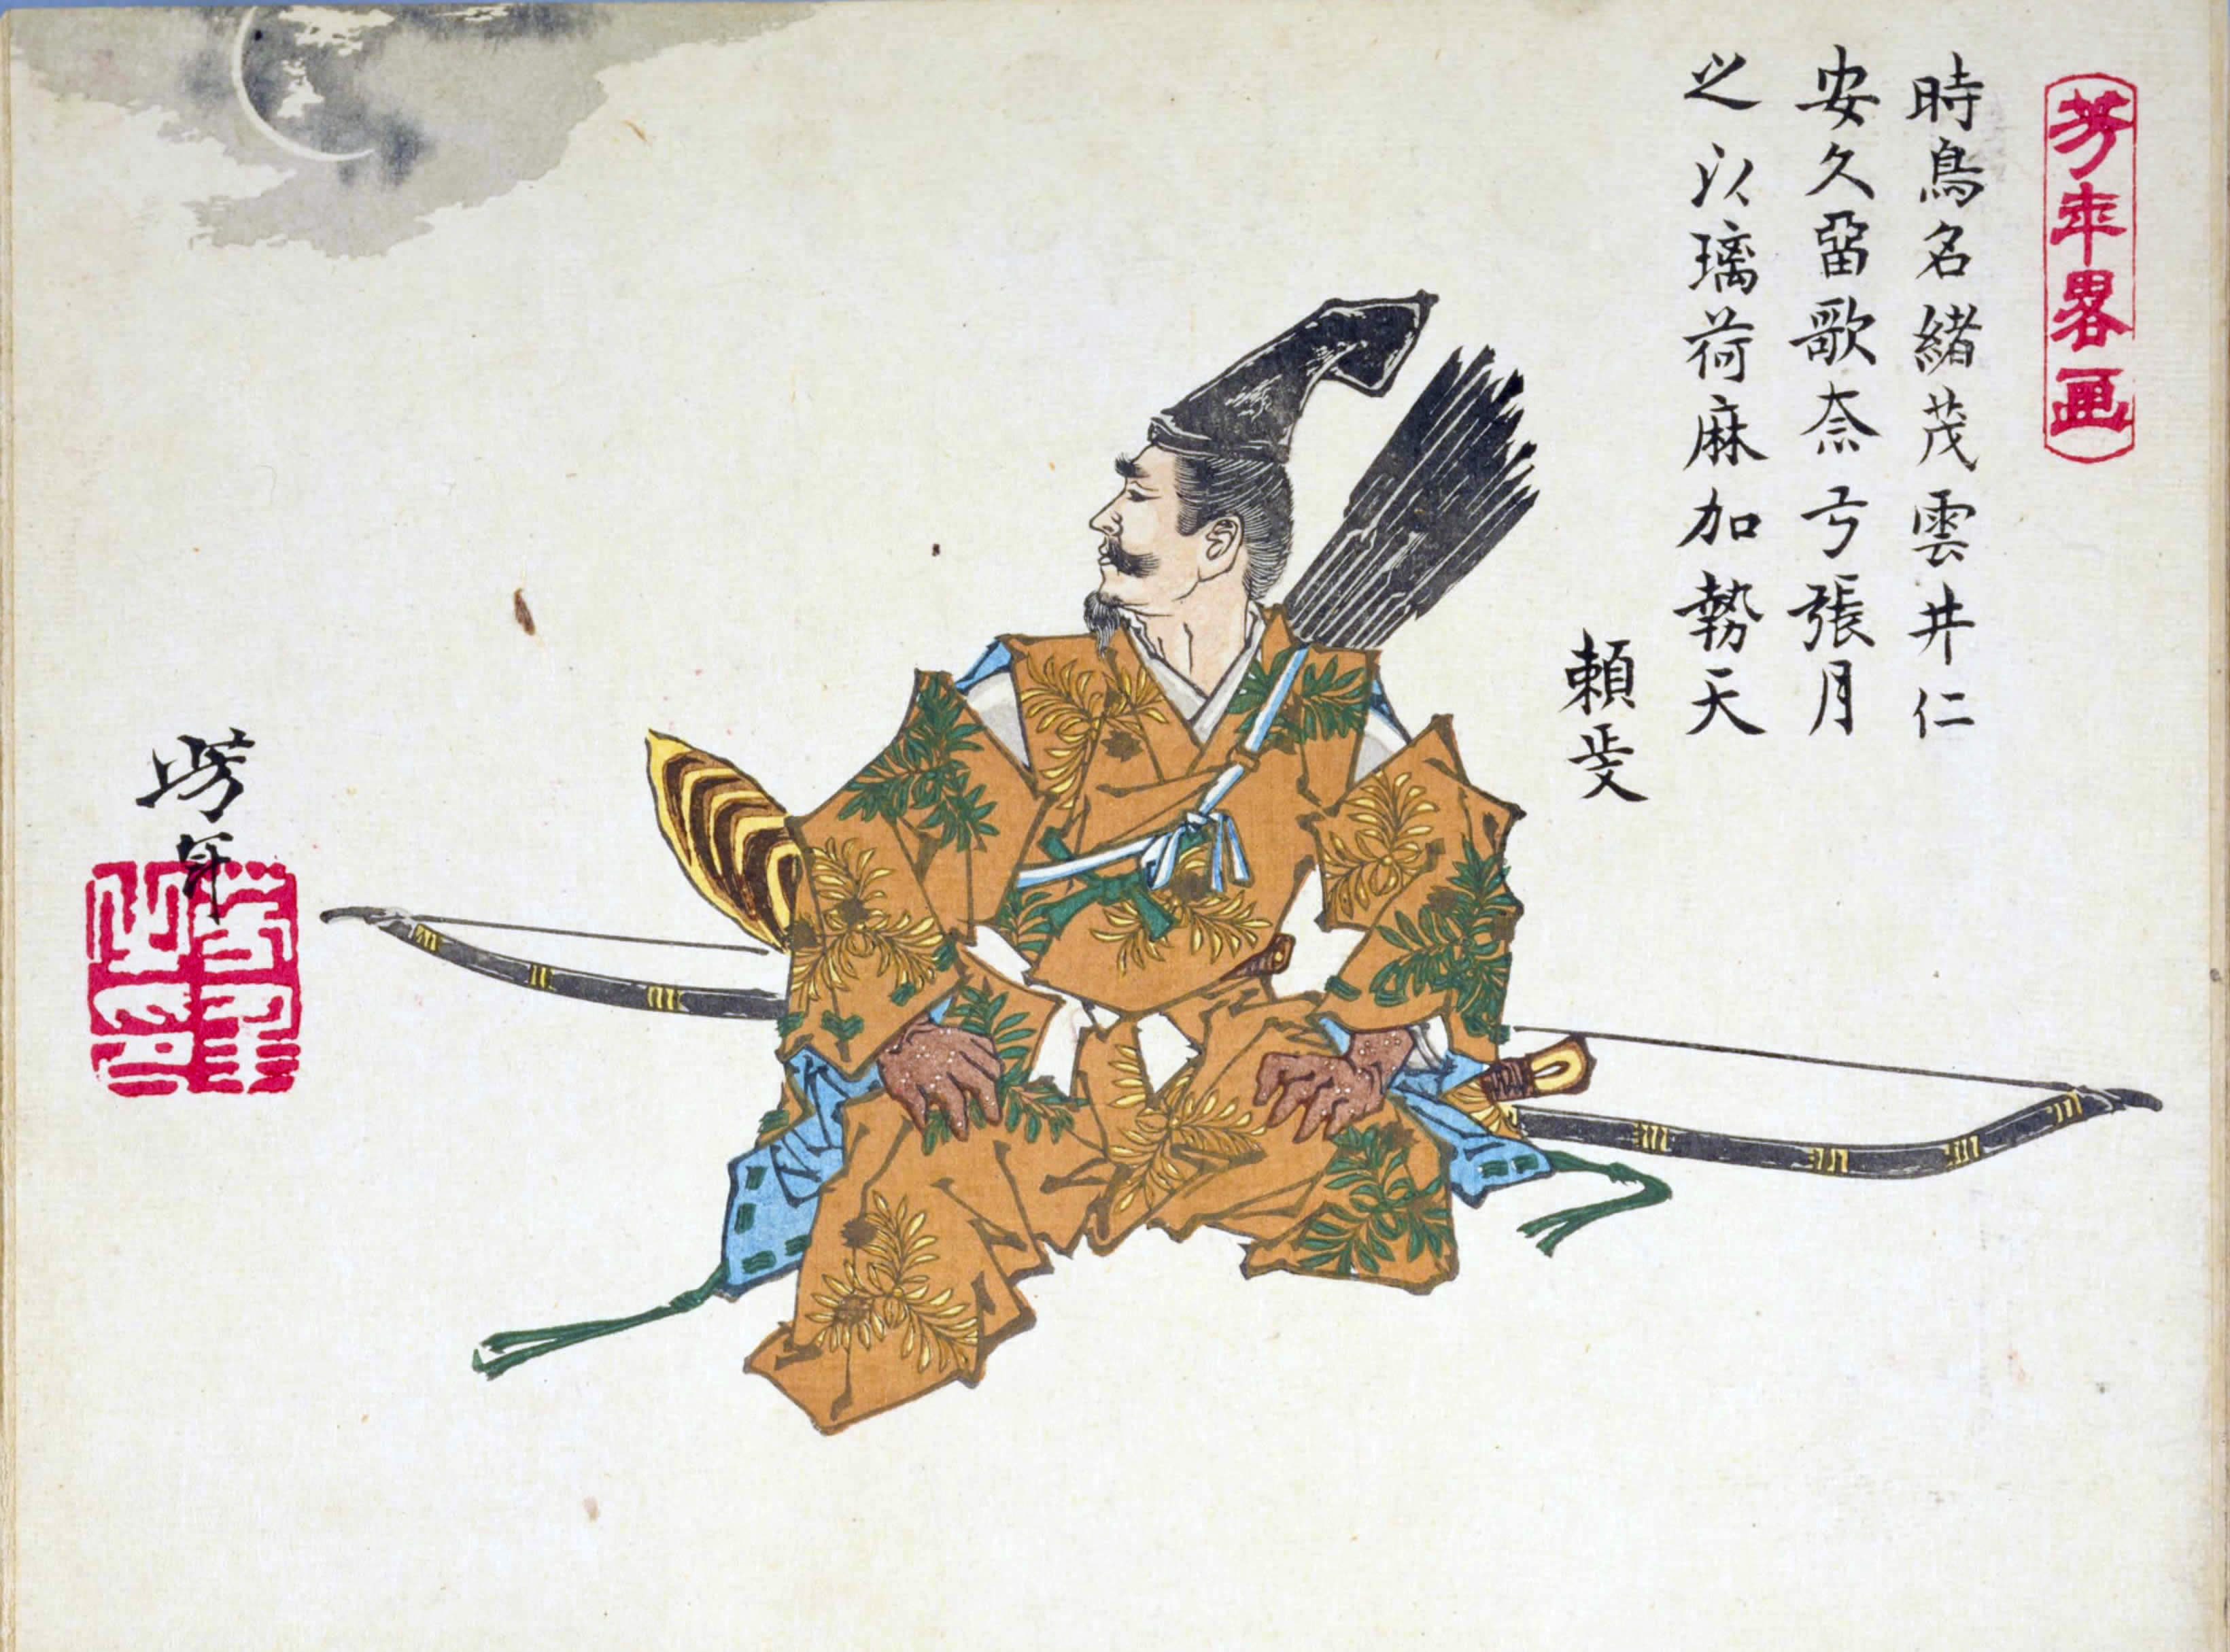 芳年畧画
時鳥名緒茂雲井仁
安久畱歌奈弓張月
之以璃荷麻加勢天
頼政
芳年
芳年之印